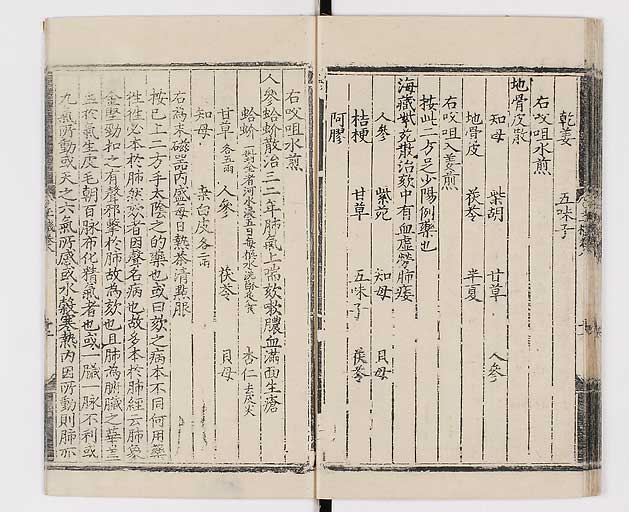 乾姜 五味子
右㕮咀水煎
地骨皮散
知母 柴胡 甘草 人參
地骨皮 茯苓 半夏
右㕮咀入姜煎
按此二方足少陽例藥也
海藏紫菀散治欬中有血虛勞肺痿
人參 紫菀 知母 貝母
桔梗 甘草 五味子 茯苓
阿膠
右㕮咀水煎
人參蛤蚧散治三二年肺氣上喘欬嗽膿血滿面生瘡
蛤蚧 一對全者河水浸五日每 杏仁 去皮尖
甘草 各五兩 人參 茯苓 貝母
知母 桒白皮 各二兩
右為末磁器內盛每日熱茶清點服
按已上二方手太陰之的藥也或曰欬之病本不同何用藥
必本於肺然欬者因聲名病也故多本於肺經云肺象
金堅勁扣之有聲邪擊於肺故為欬也且肺為腑臟之華盖
主於氣生皮毛朝百脉布化精氣者也或一臟一脉不利或
九氣所動或天之六氣所感或水穀寒熱內因所動則肺亦